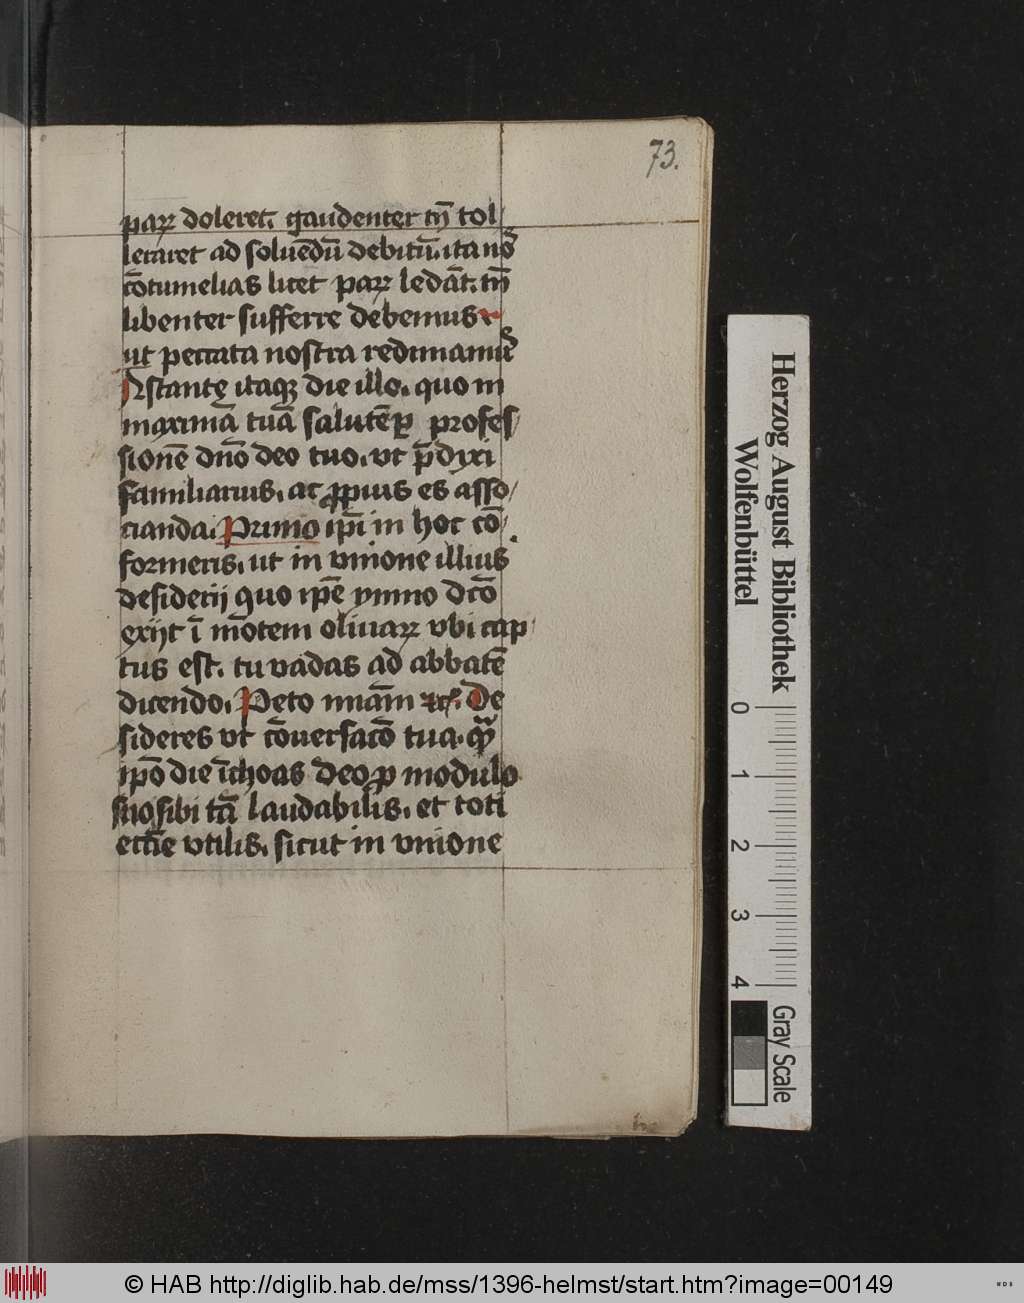 73.
paꝝ doleret. gaudenter tn̄ tol/
leraret ad soluēdū debitū. ita nos
cōtumelias licet paꝝ ledāt. tn̄
libenter sufferre debemus
ut peccata nostra redimamus
Instante itaqꝫ die illo. quo in
maximā tuā salutē ꝑ profes/
sionē dn̄o deo tuo. vt p̄dixi
familiarius. ac ꝓpius es asso/
cianda. Primo ip̄i in hoc cō/
formeris. ut in vnione illius
desiderij quo ip̄e ymno dc̄o
exijt ī mōtem oliuaꝝ vbi cap/
tus est. tu vadas ad abbatē
dicendo. Peto miām ⁊c̄. De
sideres vt cōuersac̄o tua. quā
ip̄o die īchoas deo ꝓ modulo
suo sibi tā laudabilis. et toti
ecc̄ie vtilis. sicut in vnione
Herzog August Bibliothek
Wolfenbüttel
0 1 2 3 4
Gray Scale
© HAB http://diglib.hab.de/mss/1396-helmst/start.htm?image=00149
WDB